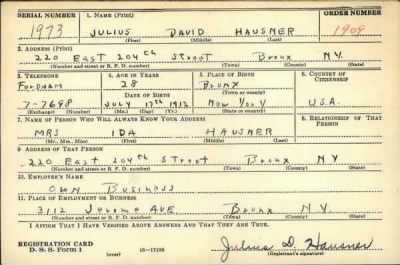 SERIAL NUMBER 1. NAME (Print) ORDER NUMBER
1973 JULIUS DAVID HAUSNER 1909
(First) (Middle) (Last)
2. ADDRESS (Print)
220 EAST 204th STREET BRONX N.Y.
(Number and street or R. F. D. number) (Town) (County) (State)
3. TELEPHONE 4. AGE IN YEARS 5. PLACE OF BIRTH 6. COUNTRY OF CITIZENSHIP
FORDHAM 28 BRONX
DATE OF BIRTH (Town or county)
7-7698 JULY 17th 1912 NEW YORK U.S.A.
(Exchange) (Number) (Mo.) (Day) (Yr.) (State or country)
7. NAME OF PERSON WHO WILL ALWAYS KNOW YOUR ADDRESS 8. RELATIONSHIP OF THAT PERSON
MRS IDA HAUSNER
(Mr., Mrs., Miss) (First) (Middle) (Last)
9. ADDRESS OF THAT PERSON
220 EAST 204th STREET BRONX NY
(Number and street or R. F. D. number) (Town) (County) (State)
10. EMPLOYER'S NAME
OWN BUSINESS
11. PLACE OF EMPLOYMENT OR BUSINESS
3112 JEROME AVE BRONX NY
(Number and street or R. F. D. number) (Town) (County) (State)
I AFFIRM THAT I HAVE VERIFIED ABOVE ANSWERS AND THAT THEY ARE TRUE.
REGISTRATION CARD
D. S. S. Form 1 (over) Julius D. Hausner
(Registrant's signature)